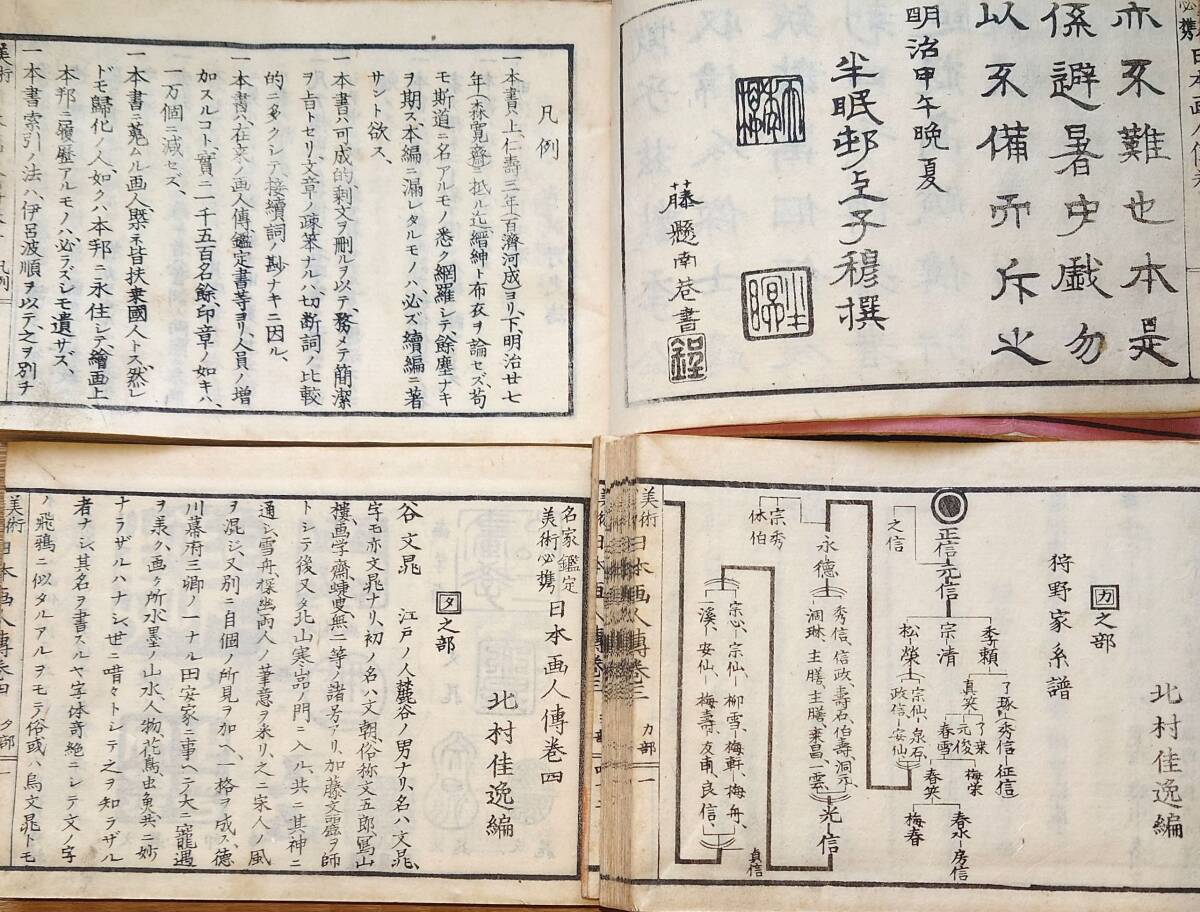 亦不難也本是
係避暑中戯勿
以不備而斥之
明治甲午晩夏
半眠邨上子穆撰
藤懸南巷書
凡例
一本書ハ上、仁壽三年(百濟河成)ヨリ、下、明治廿七
年(森寛齋)ニ抵ル迄、縉紳ト布衣ヲ論セズ、苟
モ斯道ニ名アルモノ悉ク網羅シテ、餘塵ナキ
ヲ期ス、本編ニ漏レタルモノハ、必ズ續編ニ著
サント欲ス、
一本書ハ可成的、剰文ヲ刪ルヲ以テ、務メテ簡潔
ヲ旨トセリ文章ノ疎笨ナルハ、切断詞ノ比較
的ニ多クシテ、接續詞ノ尠ナキニ因ル、
一本書ハ、在来ノ画人傳、鑑定書等ヨリ、人員ノ増
加スルコト、實ニ一千五百名餘印章ノ如キハ、
一万個ニ減セズ、
一本書ニ蒐ムル画人、槩子皆扶桒國人トス、然レ
ドモ歸化ノ人ノ如クハ、本邦ニ永住シテ、繪画上
本邦ニ履歴アルモノハ必ラズシモ遺サズ、
一本書索引ノ法ハ、伊呂波順ヲ以テ、之ヲ別チ
北村佳逸編
カ之部
狩野家系譜
正信
元信
之信
季頼
宗清
松榮
了琢
秀信
征信
真笑
了葉
元俊
春雪
梅栄
春笑
春水
房信
梅春
宗仙、泉石
政信
安仙
永德
宗秀
休伯
秀信、信政、壽石、伯壽、洞元
洞琳、主膳、主膳、葉昌、一雲
光信
貞信
宗心
宗仙
柳雪
梅軒、梅舟
溪
安仙
梅壽、友甫、良信
美術
日本画人傳卷三
カ部
一
名家鑑定
美術必携
日本画人傳卷四
北村佳逸編
タ之部
谷文晁
江戸ノ人麓谷ノ男ナリ、名ハ文晁、
字モ亦文晁ナリ、初ノ名ハ文朝、俗称文五郎、寫山
樓、画学齋、蜨叟、無二等ノ諸号アリ、加藤文靈ヲ師
トシテ後又タ北山寒岩ノ門ニ入ル、共ニ其神ニ
通シ、雪舟探幽両人ノ筆意ヲ釆リ、之ニ宋人ノ風
ヲ混シ、又別ニ自個ノ所見ヲ加ヘ、一格ヲ成ス、德
川幕府三卿ノ一ナル田安家ニ事ヘテ大ニ寵遇
ヲ羕ク、画ク所水墨ノ山水人物、花鳥虫魚、共ニ妙
ナラザルハナシ、世ニ喈々トシテ之ヲ知ラザル
者ナシ、其名ヲ書スルヤ字体竒絶ニシテ文ノ字
ノ飛鴉ニ似タルアルヲモテ俗或ハ烏文晁トモ
美術
日本画人傳卷四
タ部
一